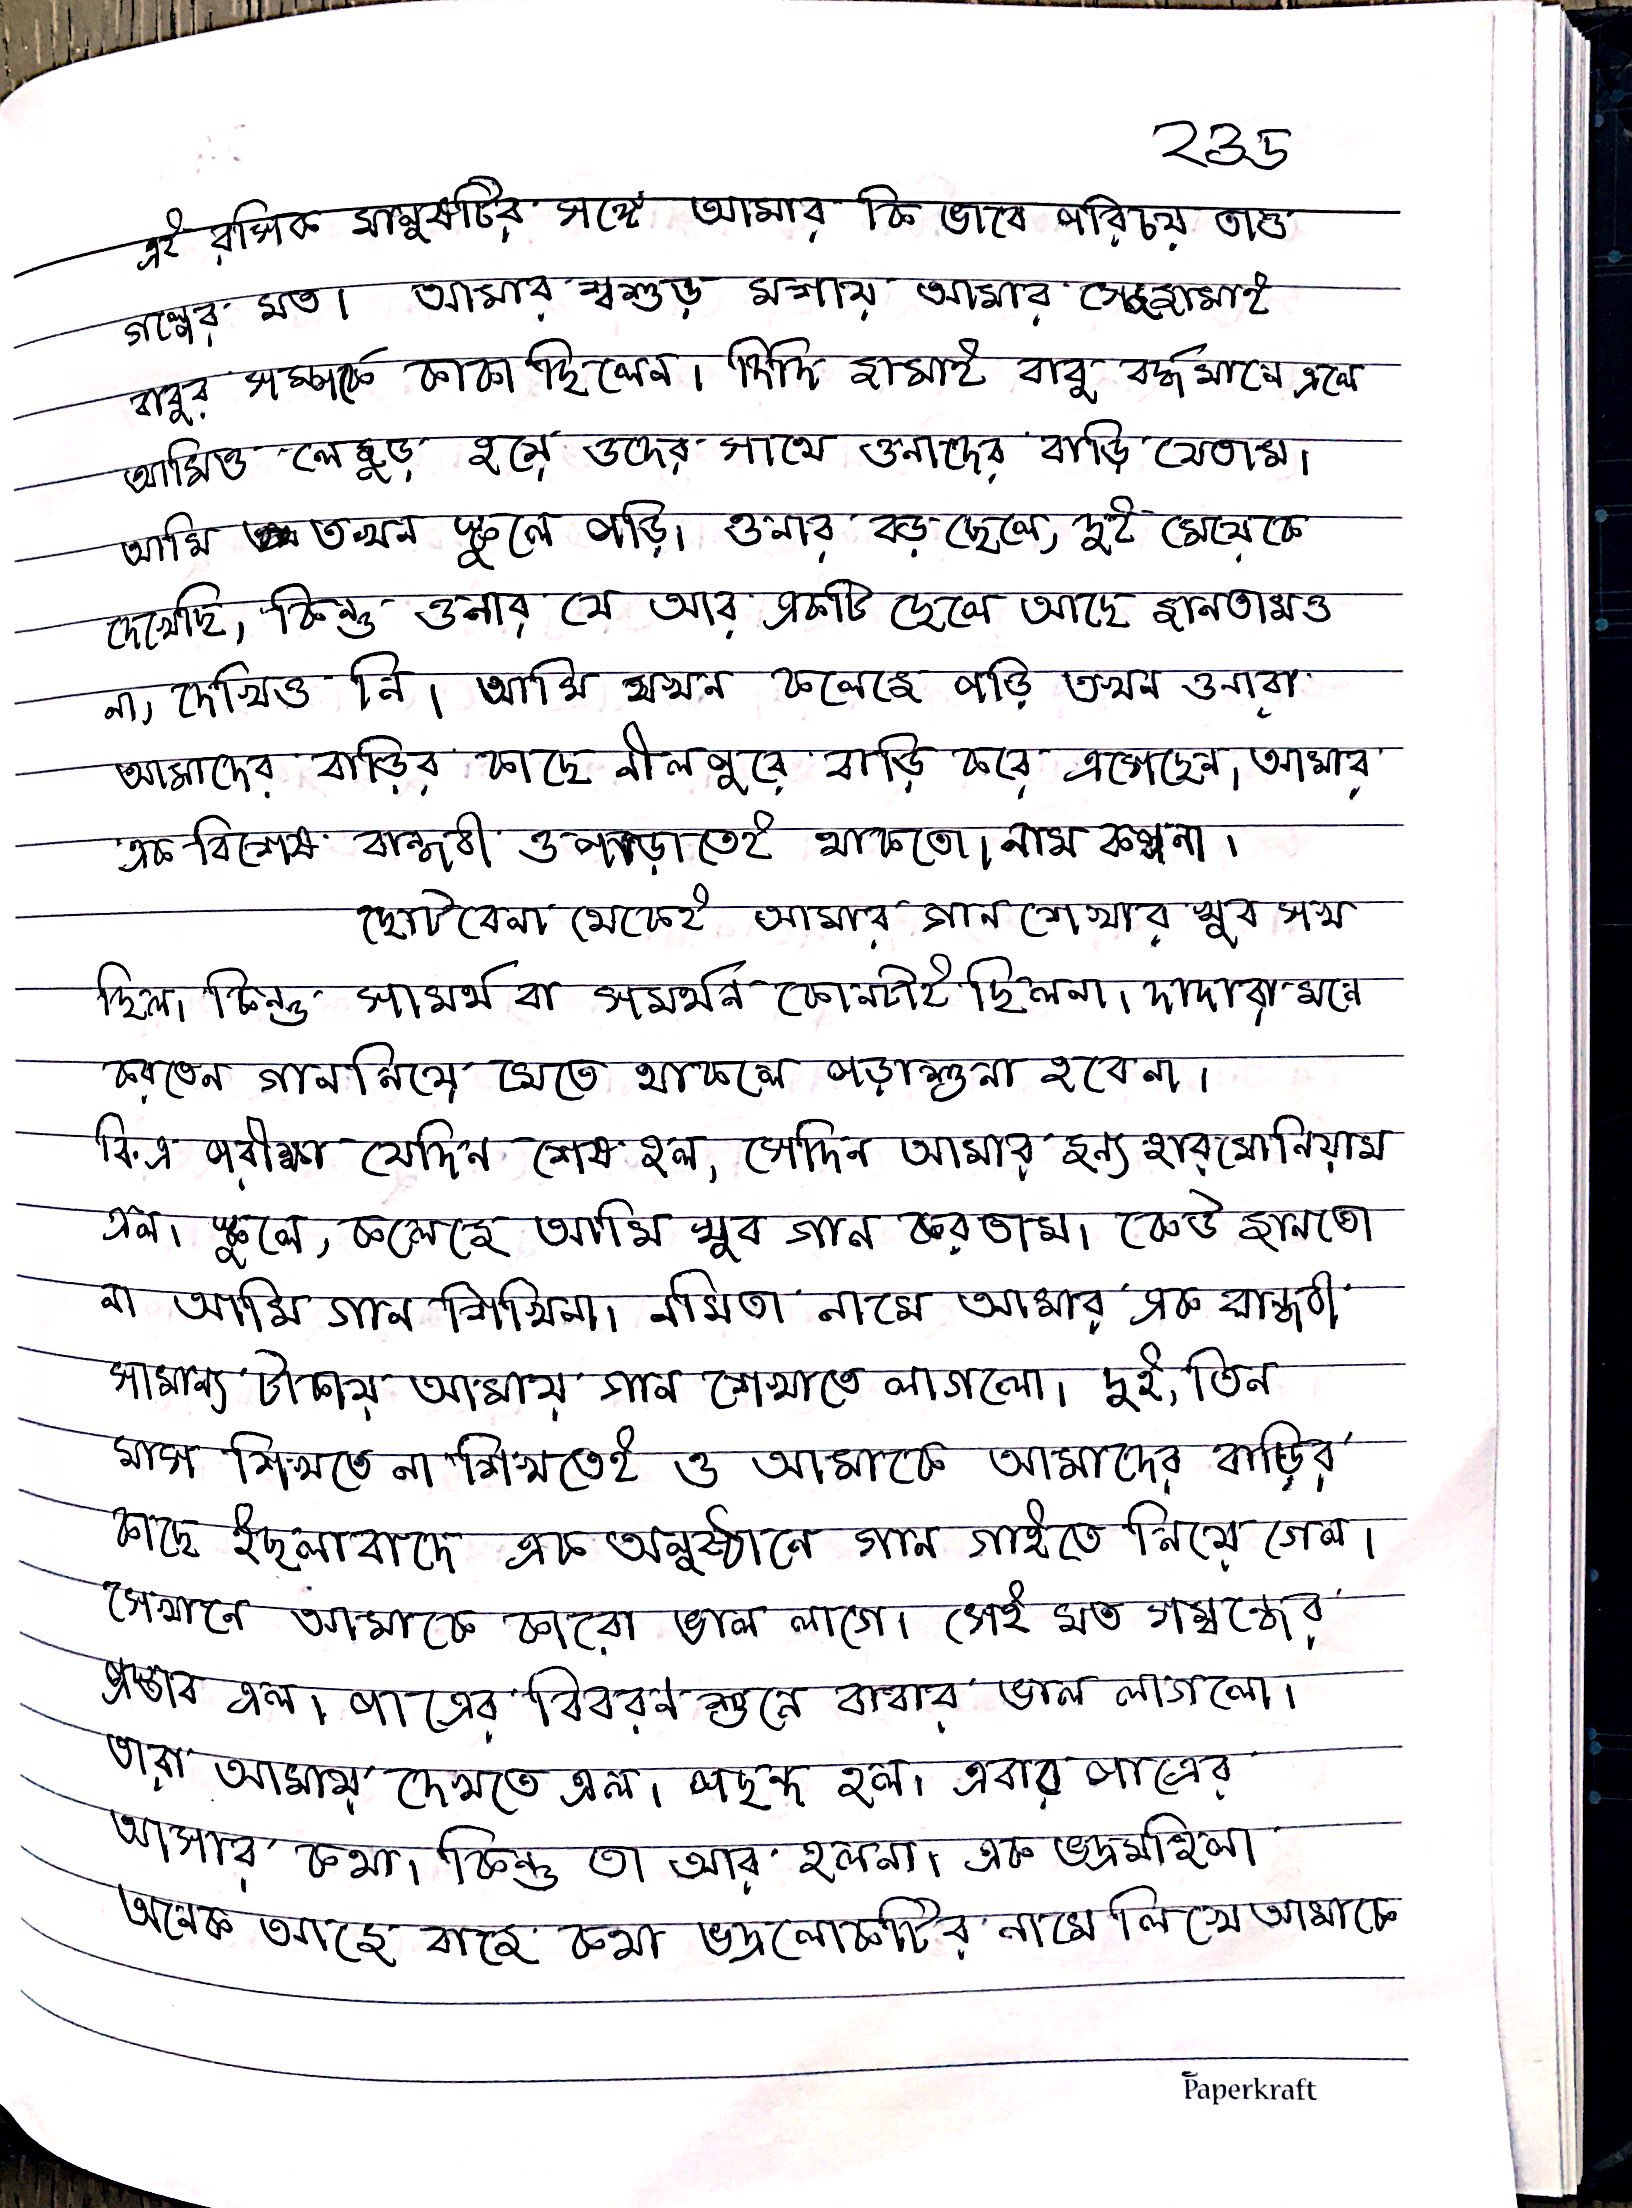 235
এই রসিক মানুষটির সঙ্গে আমার কি ভাবে পরিচয় তাও
গল্পের মত। আমার শ্বশুড় মশায় আমার সেজজামাই
বাবুর সম্পর্কে কাকা ছিলেন। দিদি জামাই বাবু বর্দ্ধমানে এলে
আমিও লেজুড় হয়ে ওদের সাথে ওনাদের বাড়ি যেতাম।
আমি তখন স্কুলে পড়ি। ওনার বড় ছেলে, দুই মেয়েকে
দেখেছি, কিন্তু ওনার যে আর একটি ছেলে আছে জানতামও
না, দেখিও নি। আমি যখন কলেজে পড়ি তখন ওনারা
আমাদের বাড়ির কাছে নীলপুরে বাড়ি করে এসেছেন। আমার
এক বিশেষ বান্ধবী ওপাড়াতেই থাকতো। নাম কল্পনা।
ছোটবেলা থেকেই আমার গান শেখার খুব সখ
ছিল। কিন্তু সামর্থ বা সমর্থন কোনটাই ছিলনা। দাদারা মনে
করতেন গান নিয়ে মেতে থাকলে পড়াশুনা হবেনা।
বি.এ পরীক্ষা যেদিন শেষ হল, সেদিন আমার জন্য হারমোনিয়াম
এল। স্কুলে, কলেজে আমি খুব গান করতাম। কেউ জানতো
না আমি গান শিখিনা। নমিতা নামে আমার এক বান্ধবী
সামান্য টাকায় আমায় গান শেখাতে লাগলো। দুই, তিন
মাস শিখতে না শিখতেই ও আমাকে আমাদের বাড়ির
কাছে ইছলাবাদে এক অনুষ্ঠানে গান গাইতে নিয়ে গেল।
সেখানে আমাকে কারো ভাল লাগে। সেই মত সম্বন্ধের
প্রস্তাব এল। পাত্রের বিবরন শুনে বাবার ভাল লাগলো।
তারা আমায় দেখতে এল। পছন্দ হল। এবার পাত্রের
আসার কথা। কিন্তু তা আর হলনা। এক ভদ্রমহিলা
অনেক আজে বাজে কথা ভদ্রলোকটির নামে লিখে আমাকে
Paperkraft